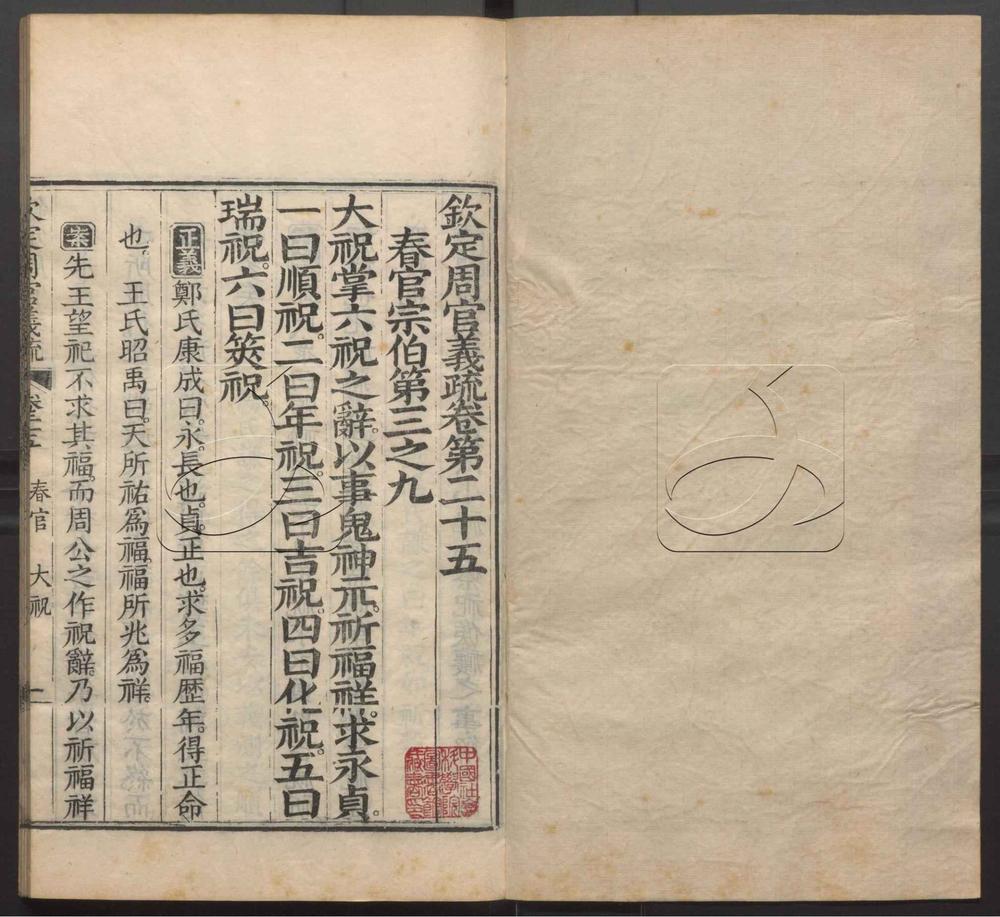 欽定周官義疏卷第二十五
春官宗伯第三之九
大祝掌六祝之辭。以事鬼神示。祈福祥。求永貞。
一曰順祝。二曰年祝。三曰吉祝。四曰化祝。五曰
瑞祝。六曰筴祝。
正義鄭氏康成曰。永。長也。貞。正也。求多福歷年。得正命
也。王氏昭禹曰。天所祐爲福。福所兆爲祥。
案先王望祀不求其福。而周公之作祝辭。乃以祈福祥
欽定周官義疏 卷二十五 春官 大祝 一